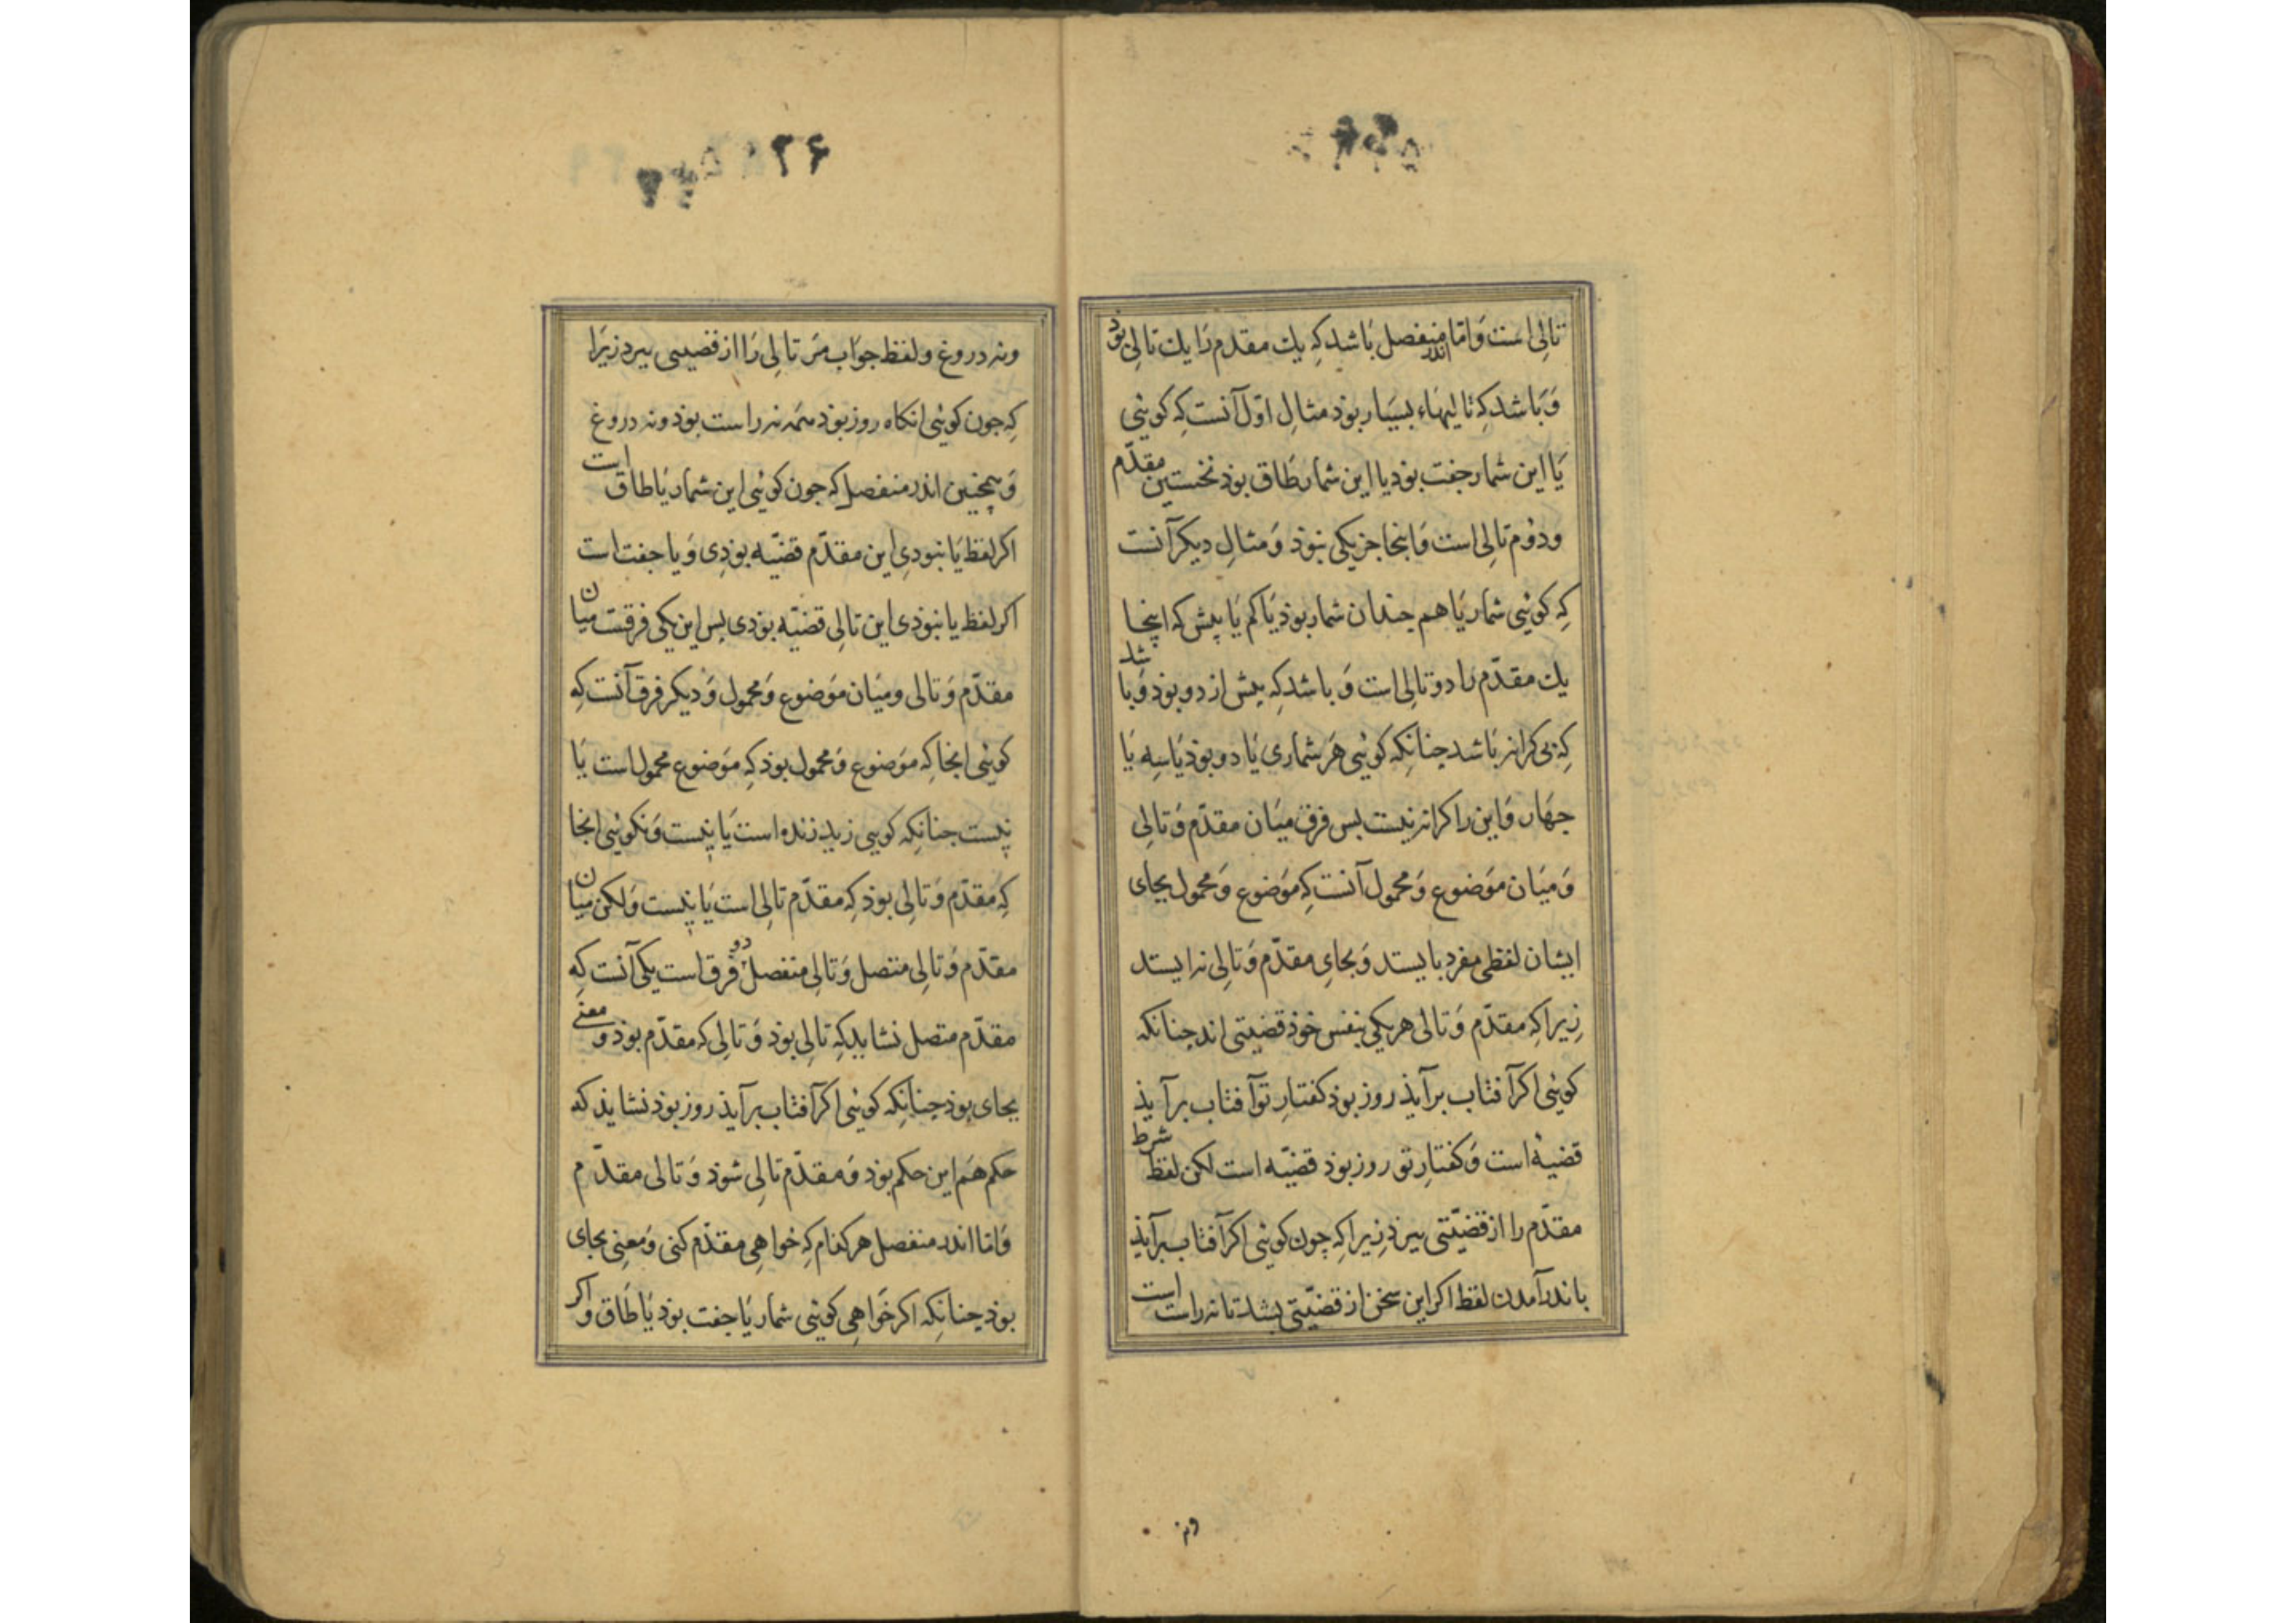 تالی است وَ اما اندر منفصل بَاشد کِه یك مقدّم رَا یك تالِی بوَذ
وَ بَاشد کِه تالیهَاء بسیَار بوذ مثالِ اوّل آنست کِه کوئی
یَا این شمار جفت بوَذ یا این شمار طَاق بوذ نخستین مقدّم
ودوُم تالِی است وَ اینجا جز یکی نبوَذ وَ مثالِ دیکر آنست
کِه کوئی شمار یَا هم چندان شمار بوذ یَا کم یَا بیش که اینجا
یك مقدّم را دو تالِی است وَ باشد کِه بیش از دو بوذ وَ باشد
کِه بی کرانه بَاشد چنانکِه کوئی هَر شماری یَا دو بوَذ یَا سِه یَا
جهَار وَ این را کرانه نیست بس فرق میَان مقدّم وَ تالِی
وَ میَان موَضوع وَ محمول آنست کِه موَضوع وَ محمول بجای
ایشان لفظی مفرد بایستد وَ بجایِ مقدّم وَ تالِی نه ایستد
زِیرا کِه مقدّم وَ تالی هر یکی بنفس خوَذ قضیتی اند چنانکه
کوئی اکر آفتاب برآیذ روز بوَذ کفتارِ تو آفتاب برآیذ
قضیه است وَ کفتارِ تو روز بوَذ قضیّه است لکن لفظ شرط
مقدّم را از قضیّتی ببرذ زِیرا کِه چون کوئی اکر آفتاب برآیذ
باندرآمدن لفظ اکر این سخن از قضیّتی بشد تا نه راست است
ونه
ونه دروغ و لفظ جوَاب مَر تالِی رَا از قضیتی ببرد زیرَا
کِه چون کوئی انکاه روز بوَذ همَه نه راست بوَذ ونه دروغ
وَ همچنین اندر منفصل که چون کوئی این شمار یَا طاق است
اکر لفظ یَا نبودیِ این مقدّم قضیّه بوذِی وَ یا جفت است
اکر لفظ یا نبوَذی این تالِی قضیّه بوذی بس این یکی فرقست میان
مقدّم وَ تالی و میَان موَضوع وَ محمول وَ دیکر فرق آنست کِه
کوئی انجا کِه موَضوع وَ محمول بوذ کِه موَضوع محمول است یَا
نیست چنانکه کویی زید زنده است یَا نیست وَ نکوئی انجا
کِه مقدّم وَ تالِی بوذ کِه مقدّم تالِی است یَا نیست وَ لکن میان
مقدّم وَ تالِی متصل وَ تالِی منفصل دو فرق است یکی آنست کِه
مقدّم متصل نشاید کِه تالِی بوَذ وَ تالِی که مقدّم بوذ وَ معنی
بجای بوذ چنانکِه کوئی اکر آفتاب برآیذ روز بوَذ نشایذ که
حکم هَم این حکم بوَذ وَ مقدّم تالِی شوَذ وَ تالی مقدّم
وَ اما اندر منفصل هر کدام کِه خواهِی مقدّم کنی وَ معنِی بجای
بوذ چنانکِه اکر خَواهِی کوئی شمار یَا جفت بوَذ یَا طَاق و اکر